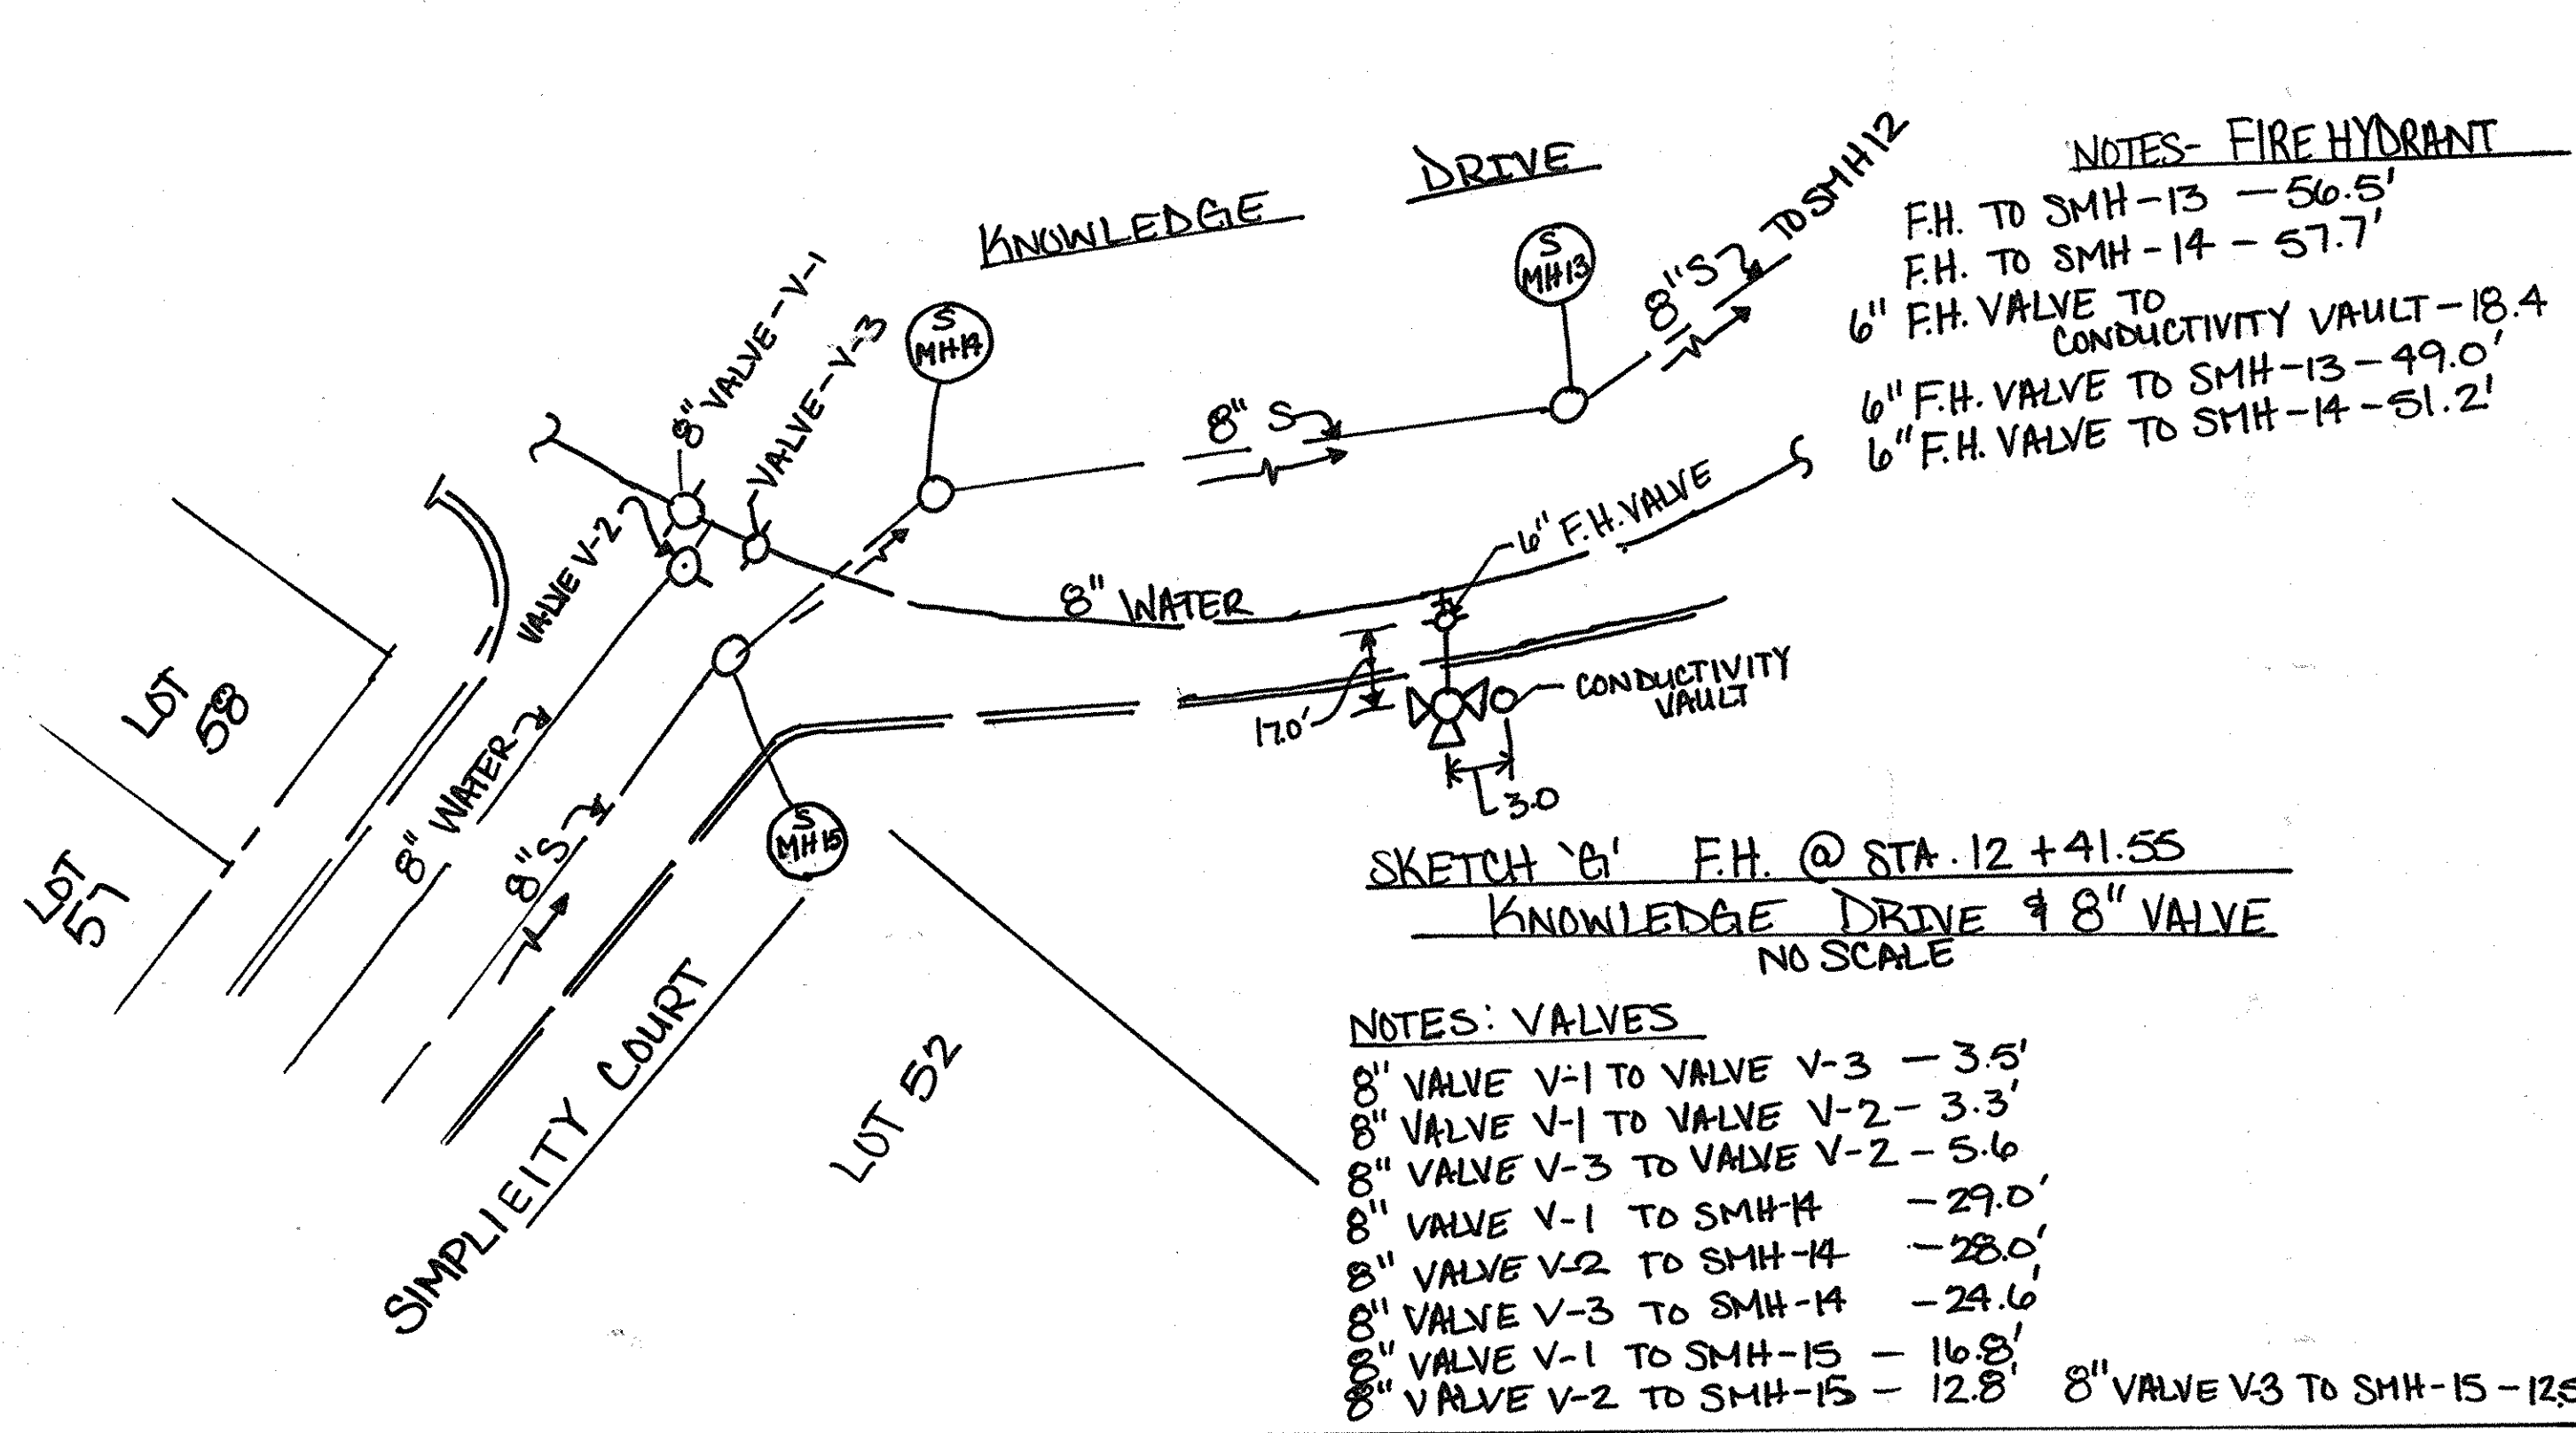 KNOWLEDGE DRIVE
NOTES- FIRE HYDRANT
F.H. TO SMH-13 - 56.5'
F.H. TO SMH-14 - 57.7'
6" F.H. VALVE TO
CONDUCTIVITY VAULT-18.4
6" F.H. VALVE TO SMH-13-49.0'
6" F.H. VALVE TO SMH-14-51.2'
8" VALVE-V-1
VALVE-V-3
VALVE V-2
S
MH14
S
MH13
8" S
8" S
TO SMH12
6" F.H. VALVE
8" WATER
17.0'
CONDUCTIVITY
VAULT
3.0
LOT
58
LOT
57
8" WATER
8" S
S
MH15
SIMPLIEITY COURT
LOT 52
SKETCH 'G' F.H. @ STA. 12 +41.55
KNOWLEDGE DRIVE & 8" VALVE
NO SCALE
NOTES: VALVES
8" VALVE V-1 TO VALVE V-3 - 3.5'
8" VALVE V-1 TO VALVE V-2 - 3.3'
8" VALVE V-3 TO VALVE V-2 - 5.6
8" VALVE V-1 TO SMH-14 - 29.0'
8" VALVE V-2 TO SMH-14 - 28.0'
8" VALVE V-3 TO SMH-14 - 24.6'
8" VALVE V-1 TO SMH-15 - 16.8'
8" VALVE V-2 TO SMH-15 - 12.8' 8" VALVE V-3 TO SMH-15 -